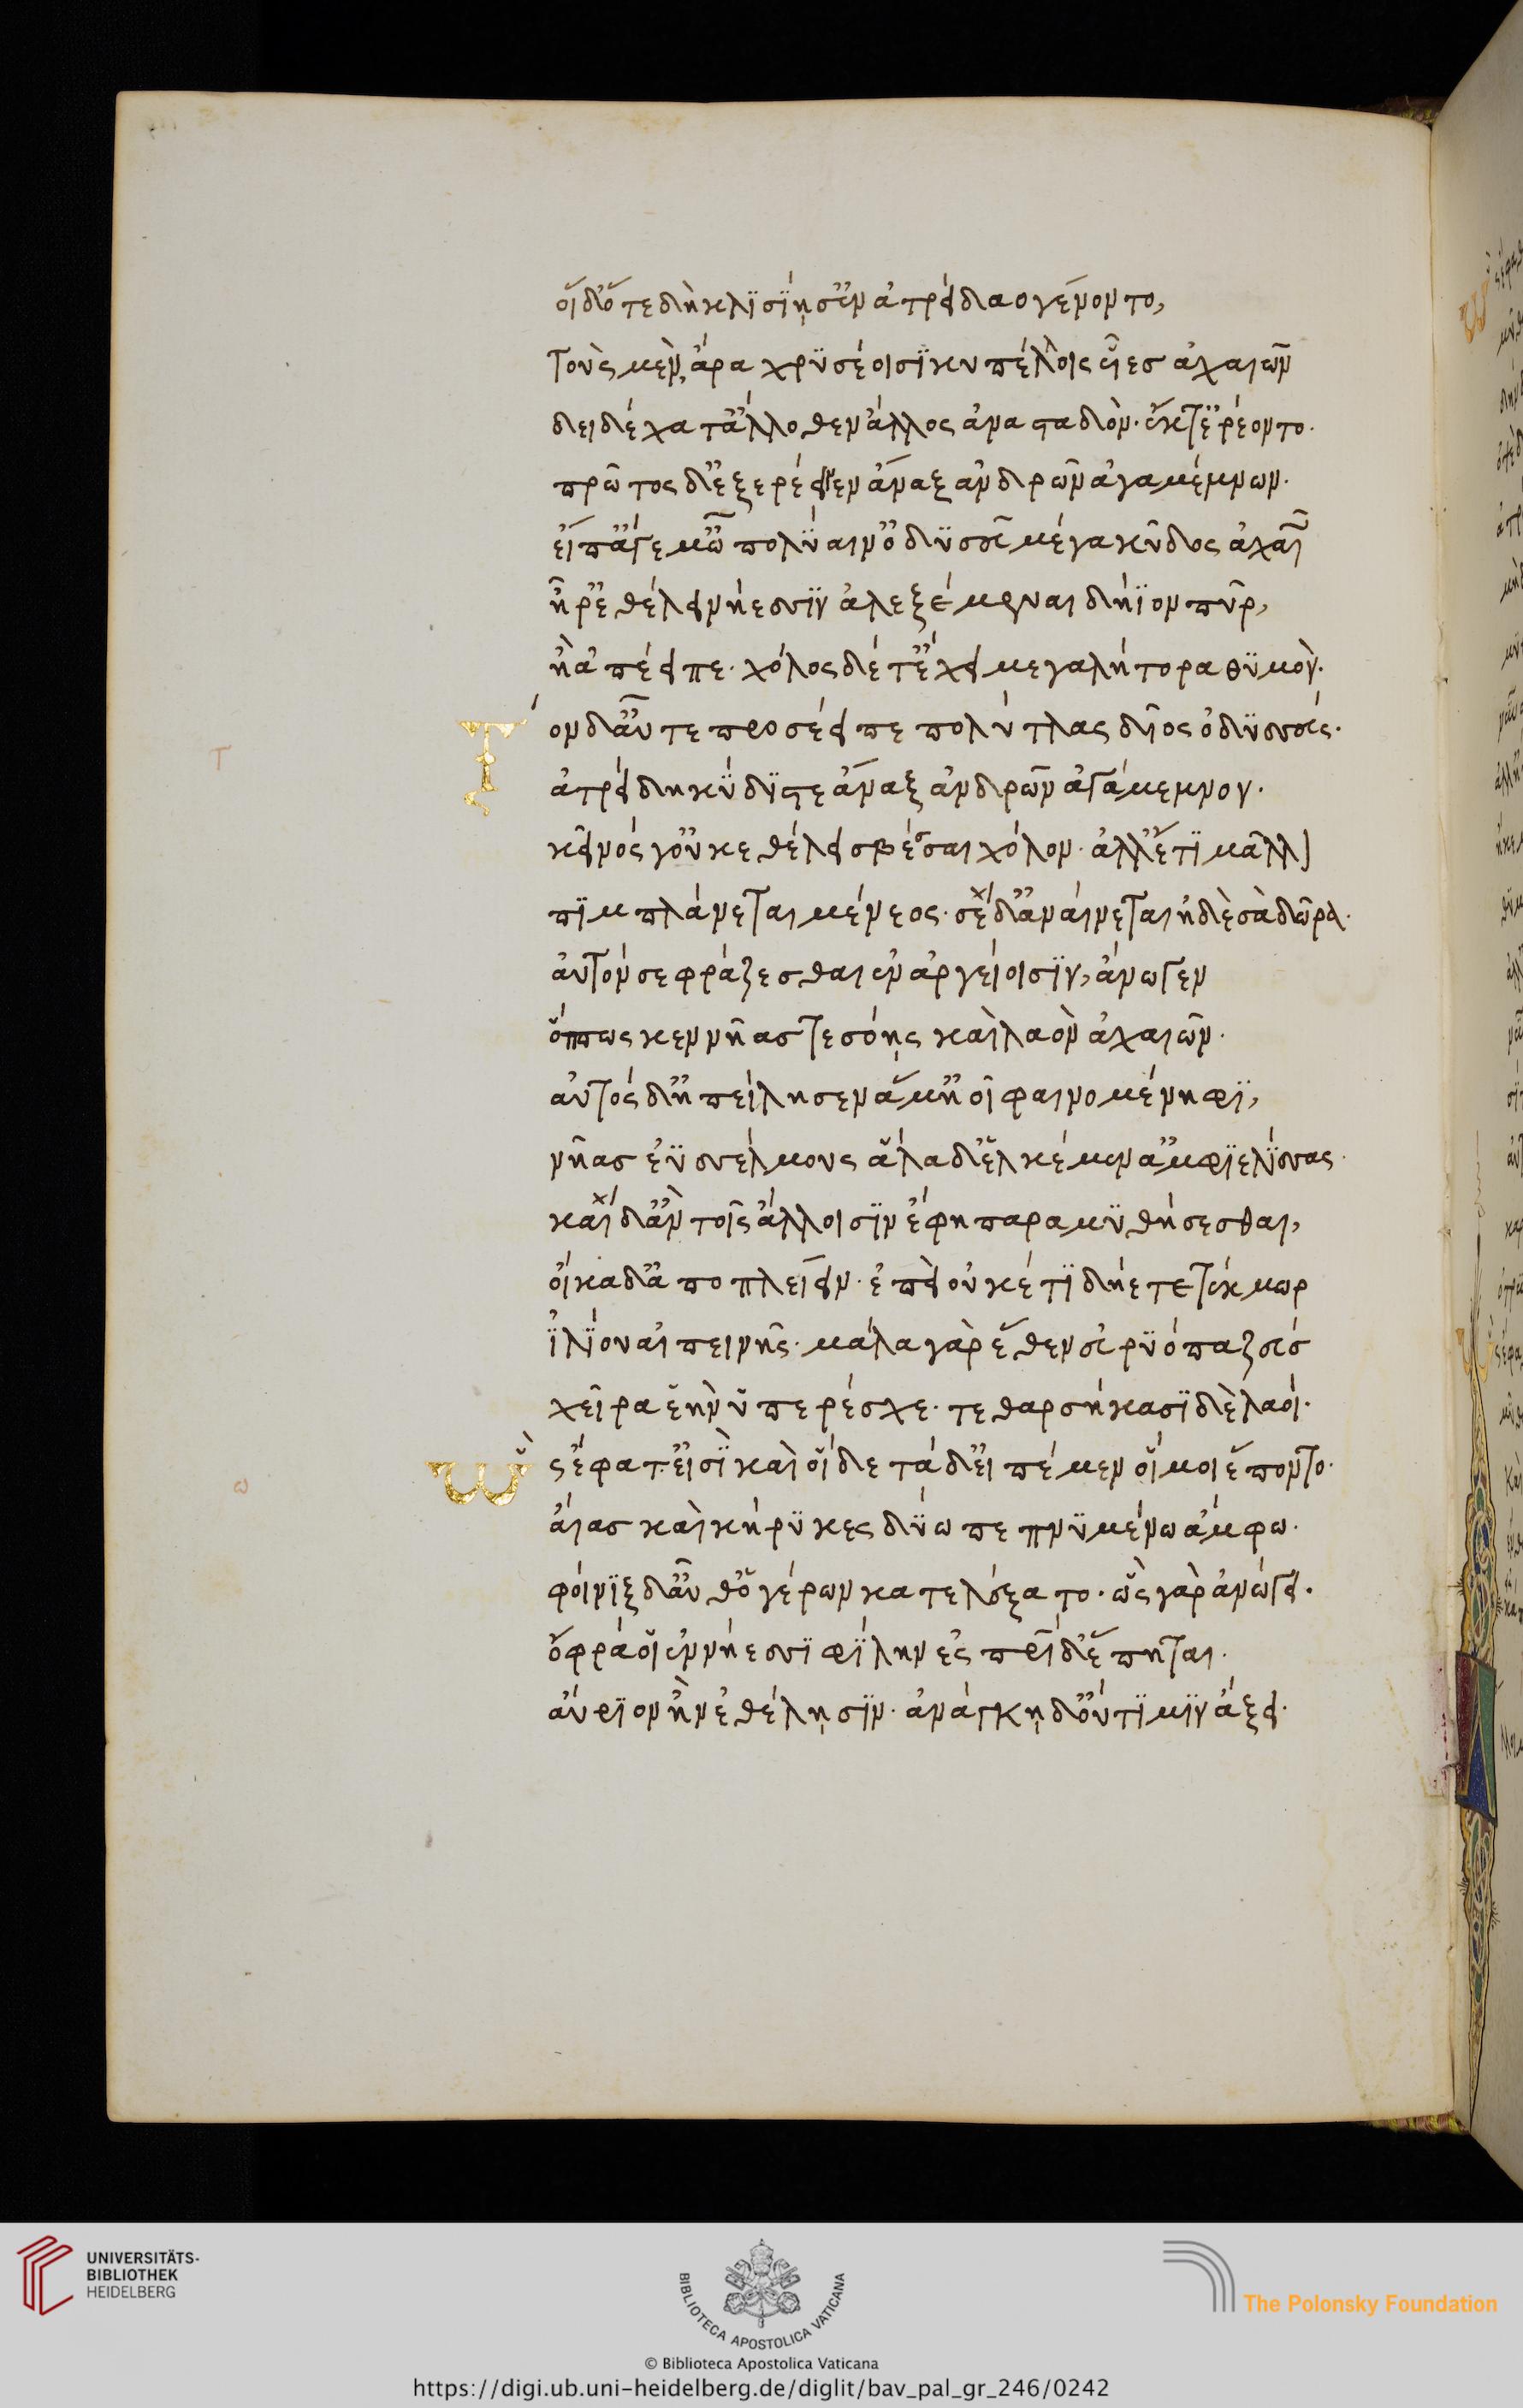 οἵ δ' ὅτε δὴ κλισίῃσιν ἀτρείδαο γένοντο,
Τοὺς μὲν ἄρα χρυσέοισι κυπέλλοις υἷες ἀχαιῶν
δειδέχατ' ἄλλοθεν ἄλλος ἀνασταδόν· ἔκ τ' ἐρέοντο·
πρῶτος δ' ἐξερέεινεν ἄναξ ἀνδρῶν ἀγαμέμνων·
εἴπ' ἄγε μ' ὦ πολύαιν' ὀδυσσεῦ μέγα κῦδος ἀχαιῶν
ἤ ῥ' ἐθέλει νήεσσιν ἀλεξέμεναι δήϊον πῦρ,
ἦ ἀπέειπε· χόλος δέ τ' ἔχει μεγαλήτορα θυμόν·
Τὸν δ' αὖτε προσέειπε πολύτλας δῖος ὀδυσσεύς·
ἀτρείδη κύδιστε ἄναξ ἀνδρῶν ἀγάμεμνον·
κεῖνός γ' οὐκ ἐθέλει σβέσσαι χόλον· ἀλλ' ἔτι μᾶλλον
πιμπλάνεται μένεος· σὲ δ' ἀναίνεται ἠδὲ σὰ δῶρα·
αὐτόν σε φράζεσθαι ἐν ἀργείοισιν, ἄνωγεν
ὅππως κεν νῆας τε σόῃς καὶ λαὸν ἀχαιῶν·
αὐτός δ' ἠπείλησεν ἅμ' ἠοῖ φαινομένηφι,
νῆας ἐϋσσέλμους ἅλα δ' ἑλκέμεν ἀμφιελίσσας·
καὶ δ' ἂν τοῖς ἄλλοισιν ἔφη παραμυθήσεσθαι,
οἴκαδ' ἀποπλείειν· ἐπεὶ οὐκέτι δήετε τέκμωρ
ἰλίου αἰπεινῆς· μάλα γὰρ ἕθεν εὐρύοπα ζεύς
χεῖρα ἑὴν ὑπερέσχε· τεθαρσήκασι δὲ λαοί·
Ὣς ἔφατ' εἰσὶ καὶ οἵδε τάδ' εἰπέμεν οἵ μοι ἕποντο·
αἴας καὶ κήρυκες δύω πεπνυμένω ἄμφω·
φοίνιξ δ' αὖθ' ὁ γέρων κατελέξατο· ὣς γὰρ ἀνώγει·
ὄφρά οἱ ἐν νήεσσι φίλην ἐς πατρίδ' ἕπηται·
αὔριον ἢν ἐθέλησιν· ἀνάγκῃ δ' οὔτι μιν ἄξει·
τ
ω
UNIVERSITÄTS-
BIBLIOTHEK
HEIDELBERG
BIBLIOTECA APOSTOLICA VATICANA
© Biblioteca Apostolica Vaticana
The Polonsky Foundation
https://digi.ub.uni-heidelberg.de/diglit/bav_pal_gr_246/0242